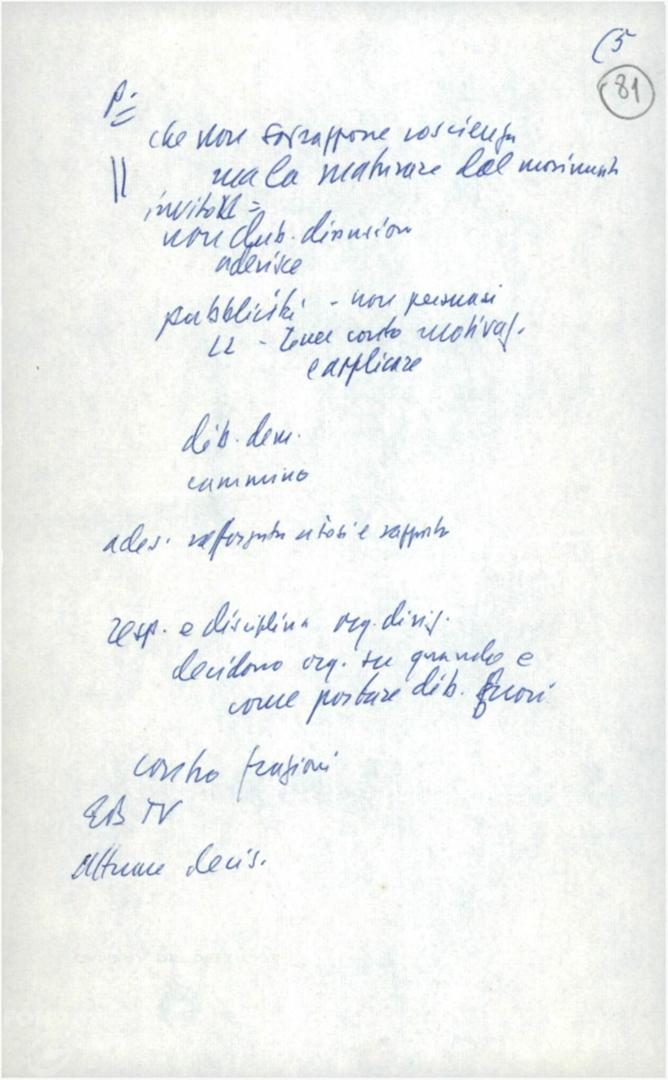 (5
81
P.
che non sovrappone coscienza
ma la maturare dal movimento
invito
non dub. discussion
aderisce
pubblicisti - non persuasi
tener conto motivaz.
e applicare
dib. dem.
cammino
ades. e rapporto
resp. e disciplina org. dirig.
decidono org. su quando e
come portare dib. fuori
contro frazioni
TV
attuare decis.